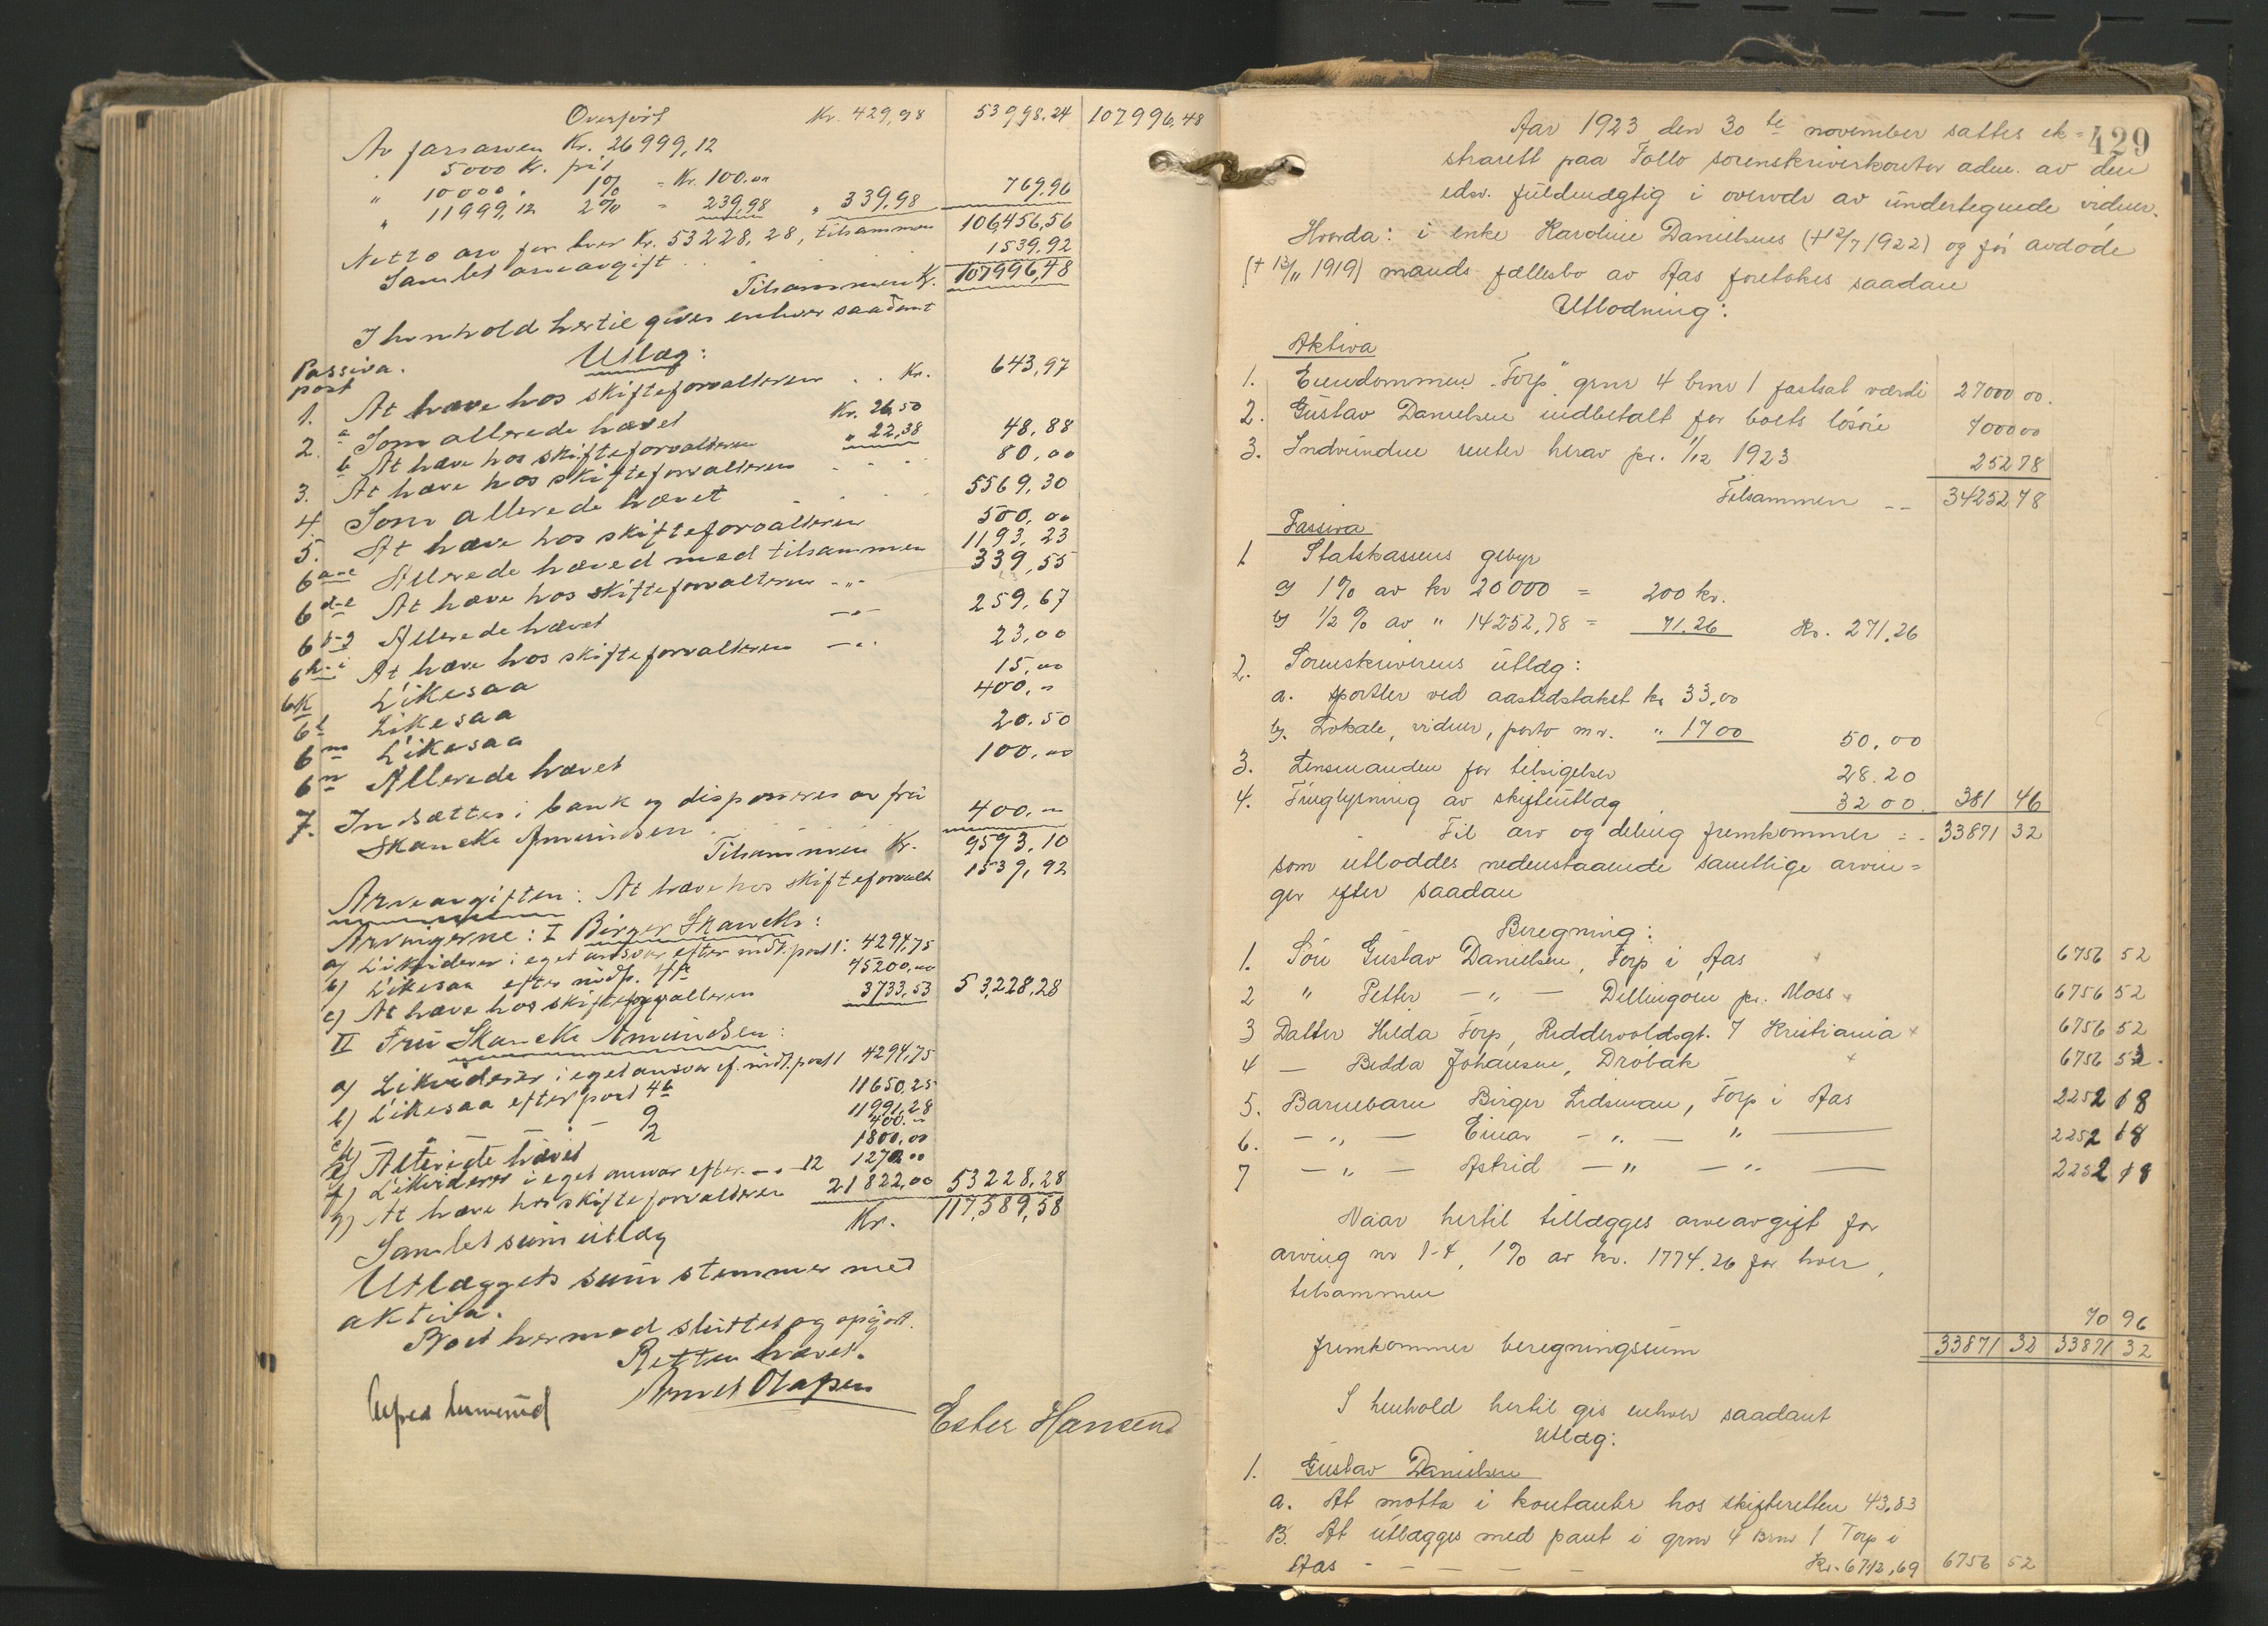 Overført Kr. 429,98 53998.24 107996,48
Av farsarven Kr. 26999,12
" 5000 Kr. fri
" 10000. 1% = Kr. 100.00
" 11999,12 2% = 239,98 " 339,98 769,96
Netto arv for hver Kr. 53228,28, tilsammen 106456,56
Samlet arveavgift 1539,92
Tilsammen Kr. 107996,48
I henhold hertil gives enhver saadant
Utlæg:
Passiva.
post
1. At hæve hos skifteforvalteren . . Kr. 643,97
2. a Som allerede hævet Kr. 26,50
b At hæve hos skifteforvalteren " 22,38 48,88
3. At hæve hos skifteforvalteren 80,00
4. Som allerede hævet 5569,30
5. At hæve hos skifteforvalteren 500,00
6 a-c Allerede hæved med tilsammen 1193,23
6 d-e At hæve hos skifteforvalteren -"- 339,55
6 f-g Allerede hævet -"- 259,67
6 h-i At hæve hos skifteforvalteren -"- 23,00
6 k Likesaa 15,00
6 l Likesaa 400,-
6 m Likesaa 20.50
6 n Allerede hævet 100,00
7. Indsættes i bank og disponeres av frú
Skancke Amundsen 400,-
Tilsammen Kr. 9593,10
Arveavgiften: At hæve hos skifteforvalt 1539,92
Arvingerne: I Birger Skancke:
a) Likviderer i eget ansvar efter indt. post 1: 4294,75
b) Likesaa efter indt. 4a 45200,00
c) At hæve hos skifteforvalteren 3733,53 53,228,28
II Frú Skancke Amundsen:
a) Likviderer i eget ansvar ef. indt. post 1 4294,75
b) Likesaa efter post 4b 11650,25
c) - " - - 9 11991,28
d) - - 2 400.-
e) Allerede hævet 1800,00
f) Likviderer i eget ansvar efter -"- 12 1270.00
g) At hæve hos skifteforvalteren 21822,00 53228,28
Samlet sum utlæg Kr. 117,589,58
Utlæggets sum stemmer med
aktiva.
Boet hermed sluttet og opgjort.
Retten hævet.
Arnet Olafsen
Ester Hansen
429
Aar 1923 den 30 te november sattes ek-
straret paa Follo sorenskriverkontor adm. av den
edsv. fuldmægtig i overvær av undertegnede vidner.
Hvorda: i enke Karoline Danielsens (+12/7 1922) og før avdøde
(+ 13/11 1919) mands fællesbo av Aas foretokes saadan
Utlodning:
Aktiva
1. Eiendommen "Torp" grnr 4 brnr 1 fastsat værdi 27000 00.
2. Gustav Danielsen indbetalt for boets løsøre 7000 00
3. Indvundne renter herav pr. 1/12 1923 252 78
Tilsammen -- 34252 78
Passiva
1 Statskassens gebyr
a) 1% av kr 20000 = 200 kr.
b) 1/2 % av " 14252,78 = 71.26 Kr. 271,26
2. Sorenskriverens utlæg:
a. sportler ved aastedstakst kr 33,00
b. Lokale, vidner, porto m.v. " 17 00 50,00
3. Lensmanden for tilsigelser 28.20
4. Tinglysning av skifteutlæg 32 00. 381 46
Til arv og deling fremkommer = - 33871 32
som utloddes nedenstaaende samtlige arvin-
ger efter saadan
Beregning:
1. Søn Gustav Danielsen, Torp i Aas 6756 52
2 " Petter - " - Dillingøen pr. Moss 6756 52
3 Datter Hilda Torp, Riddervoldsgt. 7 Kristiania 6756 52
4 — Bedda Johansen, Drøbak 6756 52.
5. Barnebarn Birger Lidsman, Torp i Aas 2252 18
6. - " - Einar - " - " — 2252 18
7 - " - Astrid - " - " — 2252 18
Naar hertil tillægges arveavgift for
arving nr 1-4, 1% av kr. 1774.26 for hver,
tilsammen 70 96
fremkommer beregningssum 33871 32 33871 32
I henhold hertil gis enhver saadant
Utlæg:
1. Gustav Danielsen
a. At motta i kontanter hos skifteretten 43,83
B. At utlægges med pant i grnr 4 Brnr 1 Torp i
Aas - - - - - Kr. 6712,69 6756 52